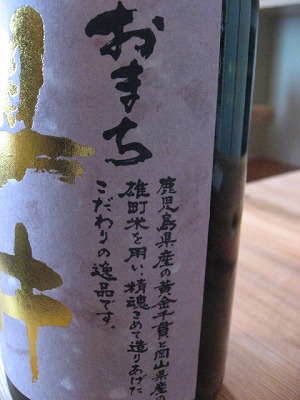 おまち
鹿児島県産の黄金千貫と岡山県産の
雄町米を用い、精魂こめて造りあげた
こだわりの逸品です。
井